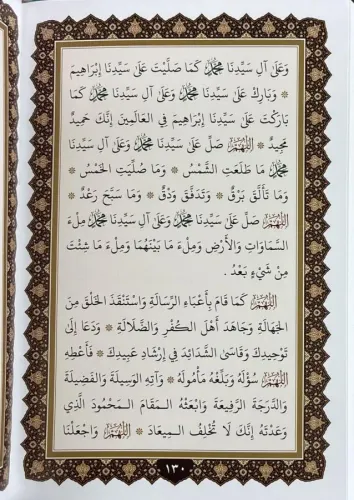 وَعَلَىٰ آلِ سَيِّدِنَا مُحَمَّدٍ كَمَا صَلَّيْتَ عَلَىٰ سَيِّدِنَا إِبْرَاهِيمَ
* وَبَارِكْ عَلَىٰ سَيِّدِنَا مُحَمَّدٍ وَعَلَىٰ آلِ سَيِّدِنَا مُحَمَّدٍ كَمَا
بَارَكْتَ عَلَىٰ سَيِّدِنَا إِبْرَاهِيمَ فِي العَالَمِينَ إِنَّكَ حَمِيدٌ
مَجِيدٌ * اللَّهُمَّ صَلِّ عَلَىٰ سَيِّدِنَا مُحَمَّدٍ وَعَلَىٰ آلِ سَيِّدِنَا
مُحَمَّدٍ مَا طَلَعَتِ الشَّمْسُ * وَمَا صُلِّيَتِ الخَمْسُ *
وَمَا تَأَلَّقَ بَرْقٌ * وَتَدَفَّقَ وَدْقٌ * وَمَا سَبَّحَ رَعْدٌ *
اللَّهُمَّ صَلِّ عَلَىٰ سَيِّدِنَا مُحَمَّدٍ وَعَلَىٰ آلِ سَيِّدِنَا مُحَمَّدٍ مِلْءَ
السَّمَاوَاتِ وَالأَرْضِ وَمِلْءَ مَا بَيْنَهُمَا وَمِلْءَ مَا شِئْتَ
مِنْ شَيْءٍ بَعْدُ .
اللَّهُمَّ كَمَا قَامَ بِأَعْبَاءِ الرِّسَالَةِ وَاسْتَنْقَذَ الخَلْقَ مِنَ
الجَهَالَةِ وَجَاهَدَ أَهْلَ الكُفْرِ وَالضَّلَالَةِ * وَدَعَا إِلَىٰ
تَوْحِيدِكَ وَقَاسَىٰ الشَّدَائِدَ فِي إِرْشَادِ عَبِيدِكَ * فَأَعْطِهِ
اللَّهُمَّ سُؤْلَهُ وَبَلِّغْهُ مَأْمُولَهُ * وَآتِهِ الوَسِيلَةَ وَالفَضِيلَةَ
وَالدَّرَجَةَ الرَّفِيعَةَ وَابْعَثْهُ المَقَامَ المَحْمُودَ الَّذِي
وَعَدْتَهُ إِنَّكَ لَا تُخْلِفُ المِيعَادَ * اللَّهُمَّ وَاجْعَلْنَا
١٣٠